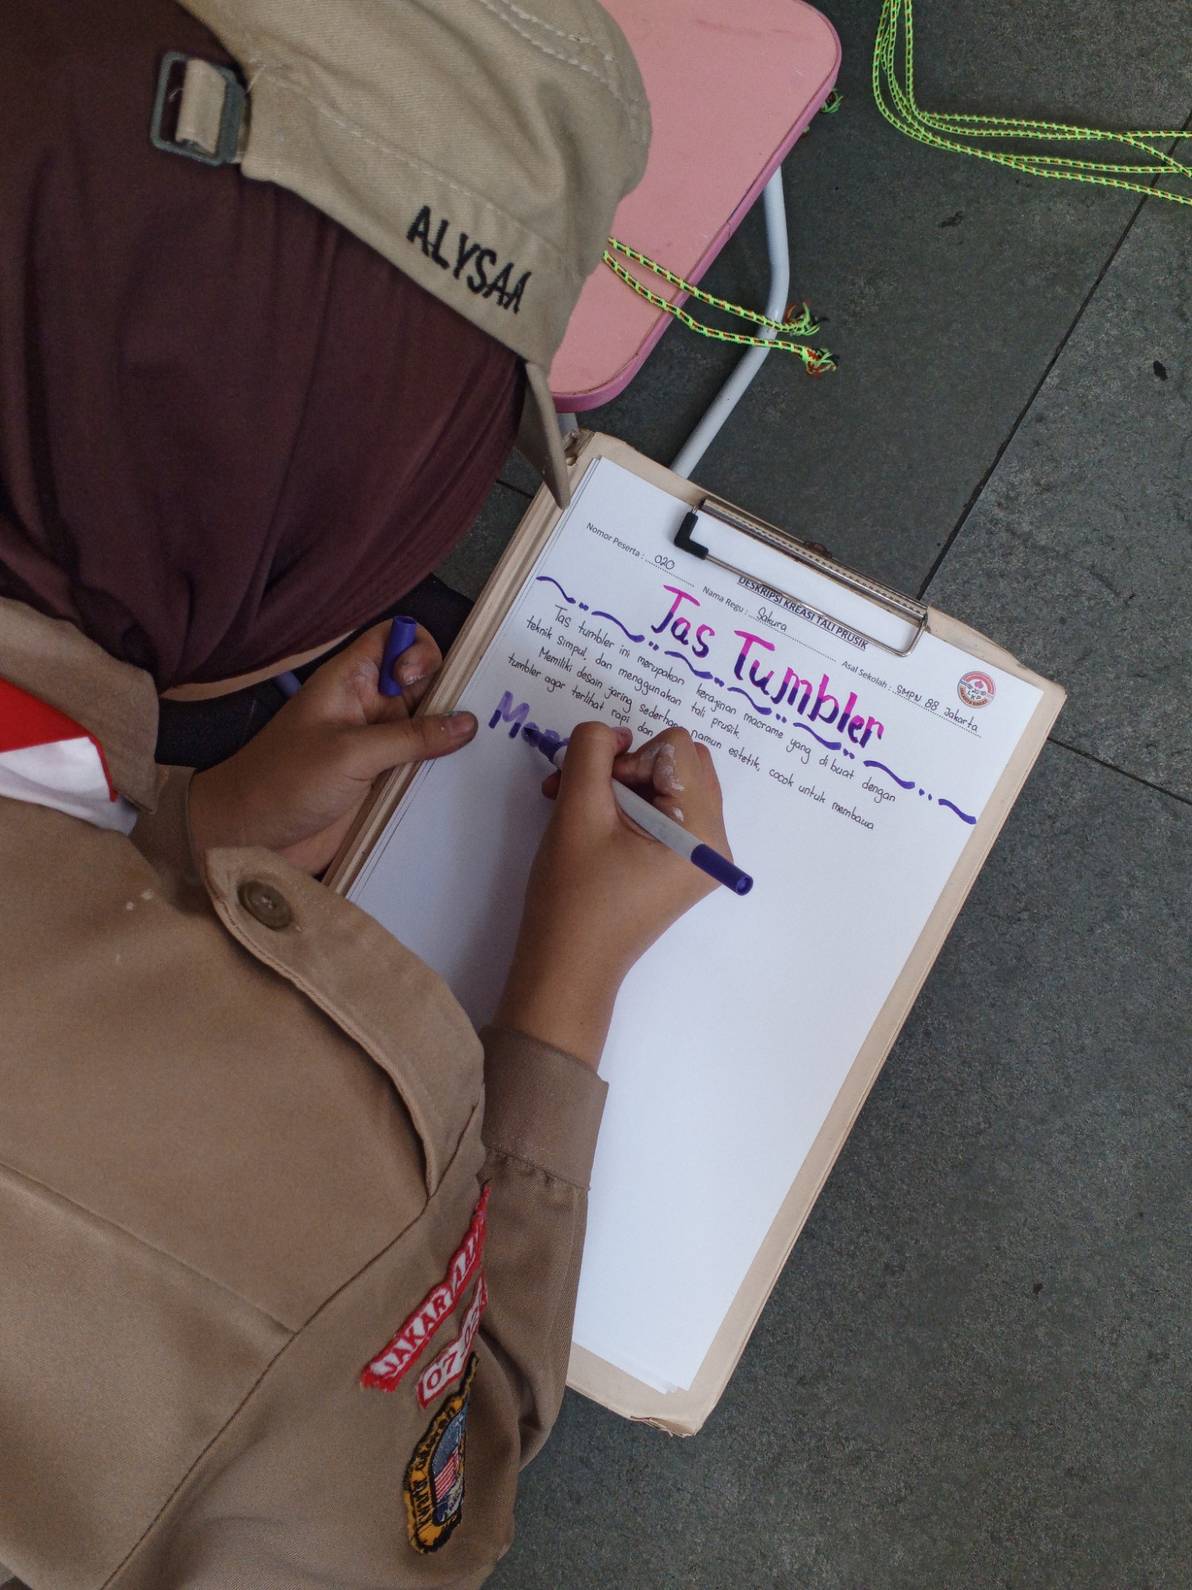 ALYSAA
DESKRIPSI KREASI TALI PRUSIK
Nomor Peserta : 020 Nama Regu : Sakura Asal Sekolah : SMPN 88 Jakarta
Tas Tumbler
Tas tumbler ini merupakan kerajinan macrame yang dibuat dengan
teknik simpul, dan menggunakan tali prusik.
Memiliki desain jaring sederhana namun estetik, cocok untuk membawa
tumbler agar terlihat rapi dan
JAKAR
07